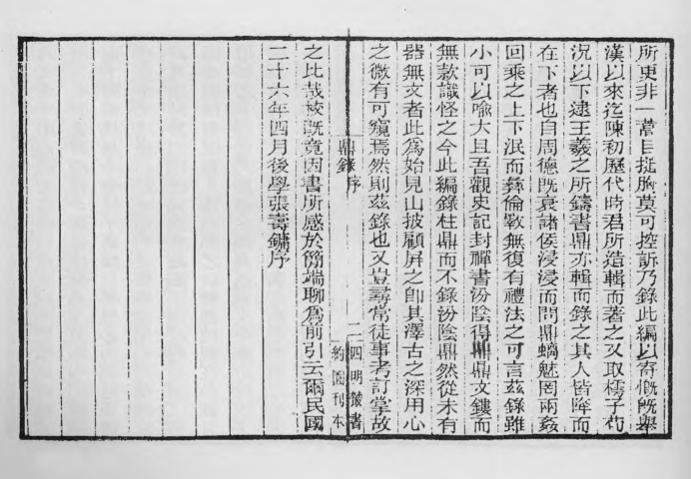 所更非一蒿目搥胸莫可控訴乃錄此編以寄慨既舉
漢以來迄陳初歷代時君所造輯而著之又取檽子苟
況以下逮王羲之所鑄書鼎亦輯而錄之其人皆降而
在下者也自周德既衰諸侯浸浸而問鼎螭魅罔兩姦
回乘之上下泯而彝倫斁無復有禮法之可言茲錄雖
小可以喻大且吾觀史記封禪書汾陰得鼎鼎文鏤而
無款識怪之今此編錄柱鼎而不錄汾陰鼎然從未有
器無文者此為始見山披顧屏之卽其澤古之深用心
之微有可窺焉然則茲錄也又豈尋常徒事考訂掌故
鼎錄序
二
四明叢書
約園刊本
之比哉校既竟因書所感於簡端聊為前引云爾民國
二十六年四月後學張壽鏞序